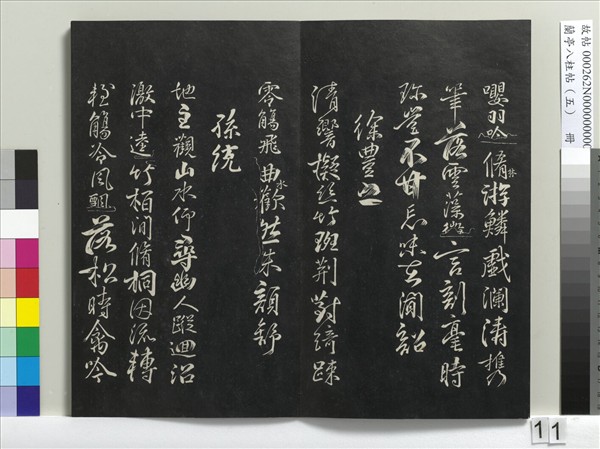 嚶羽吟脩林游鱗戲瀾濤攜
筆落雲藻微言剖毫時
珍豈不甘忘味在聞韶
徐豐之
清響擬絲竹班荊對綺疎
零觴飛曲水歡然朱顏舒
孫統
地主觀山水仰尋幽人蹤迴沼
激中逵竹柏間脩桐因流轉
輕觴冷風飄落松時禽吟
故帖 000262N000000000
蘭亭八柱帖(五) 冊
11